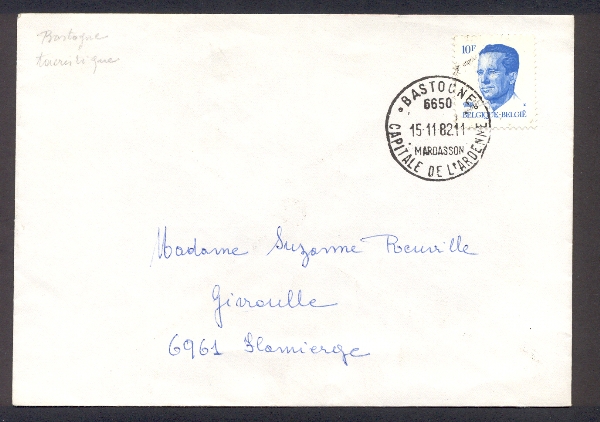 Bastogne
touristique
10F
BELGIQUE-BELGIË
BASTOGNE
6650
15-11-82.11
MARDASSON
CAPITALE DE L'ARDENNE
Madame Suzanne Reuville
Givroulle
6961 Flamierge